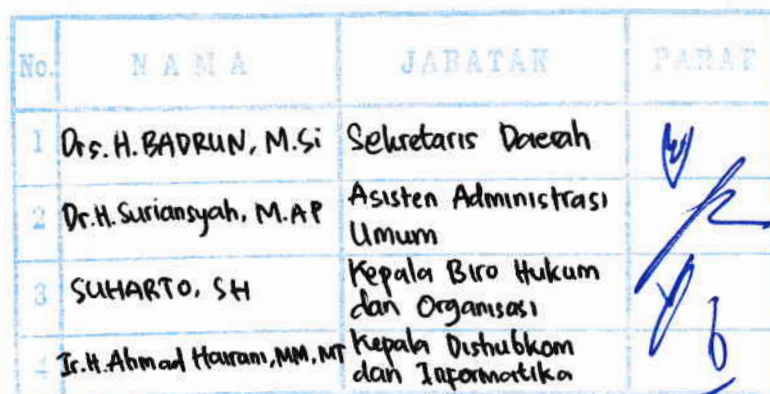 No. NAMA JABATAN PARAF
1 Drs. H. BADRUN, M.Si Sekretaris Daerah
2 Dr. H. Suriansyah, M.AP Asisten Administrasi
Umum
3 SUHARTO, SH Kepala Biro Hukum
dan Organisasi
4 Ir. H. Ahmad Hairani, MM, MT Kepala Dishubkom
dan Informatika